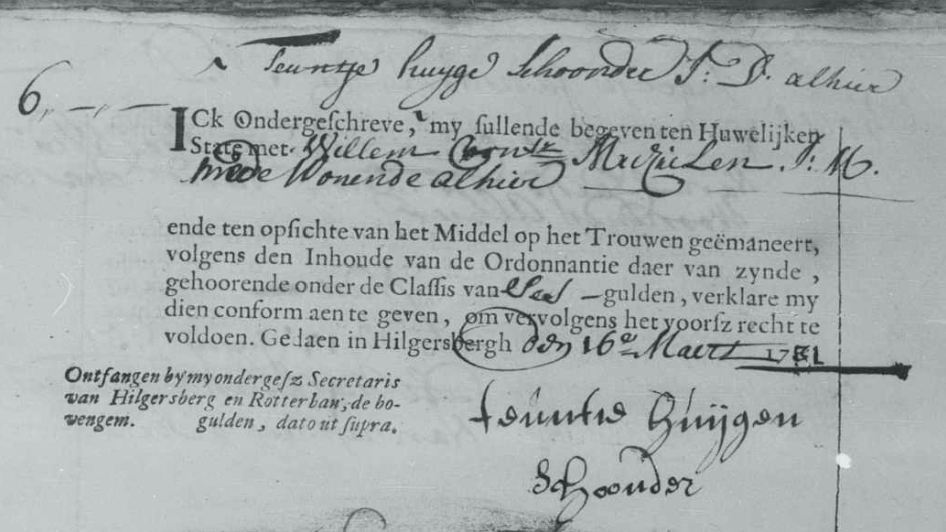 Teuntje huyge Schoonder J: D. alhier
6,, — „ —
ICk Ondergeschreve, my sullende begeven ten Huwelijken
State met Willem Michielen. J: M.
mede Wonende alhier
ende ten opsichte van het Middel op het Trouwen geëmaneert,
volgens den Inhoude van de Ordonnantie daer van zynde,
gehoorende onder de Classis van Ses – gulden, verklare my
dien conform aen te geven, om vervolgens het voorsz recht te
voldoen. Gedaen in Hilgersbergh den 16e Maert
Ontfangen by my ondergesz Secretaris
van Hilgersberg en Rotterban, de bo-
vengem. gulden, dato ut supra.
teuntie Huijgen
Schoonder